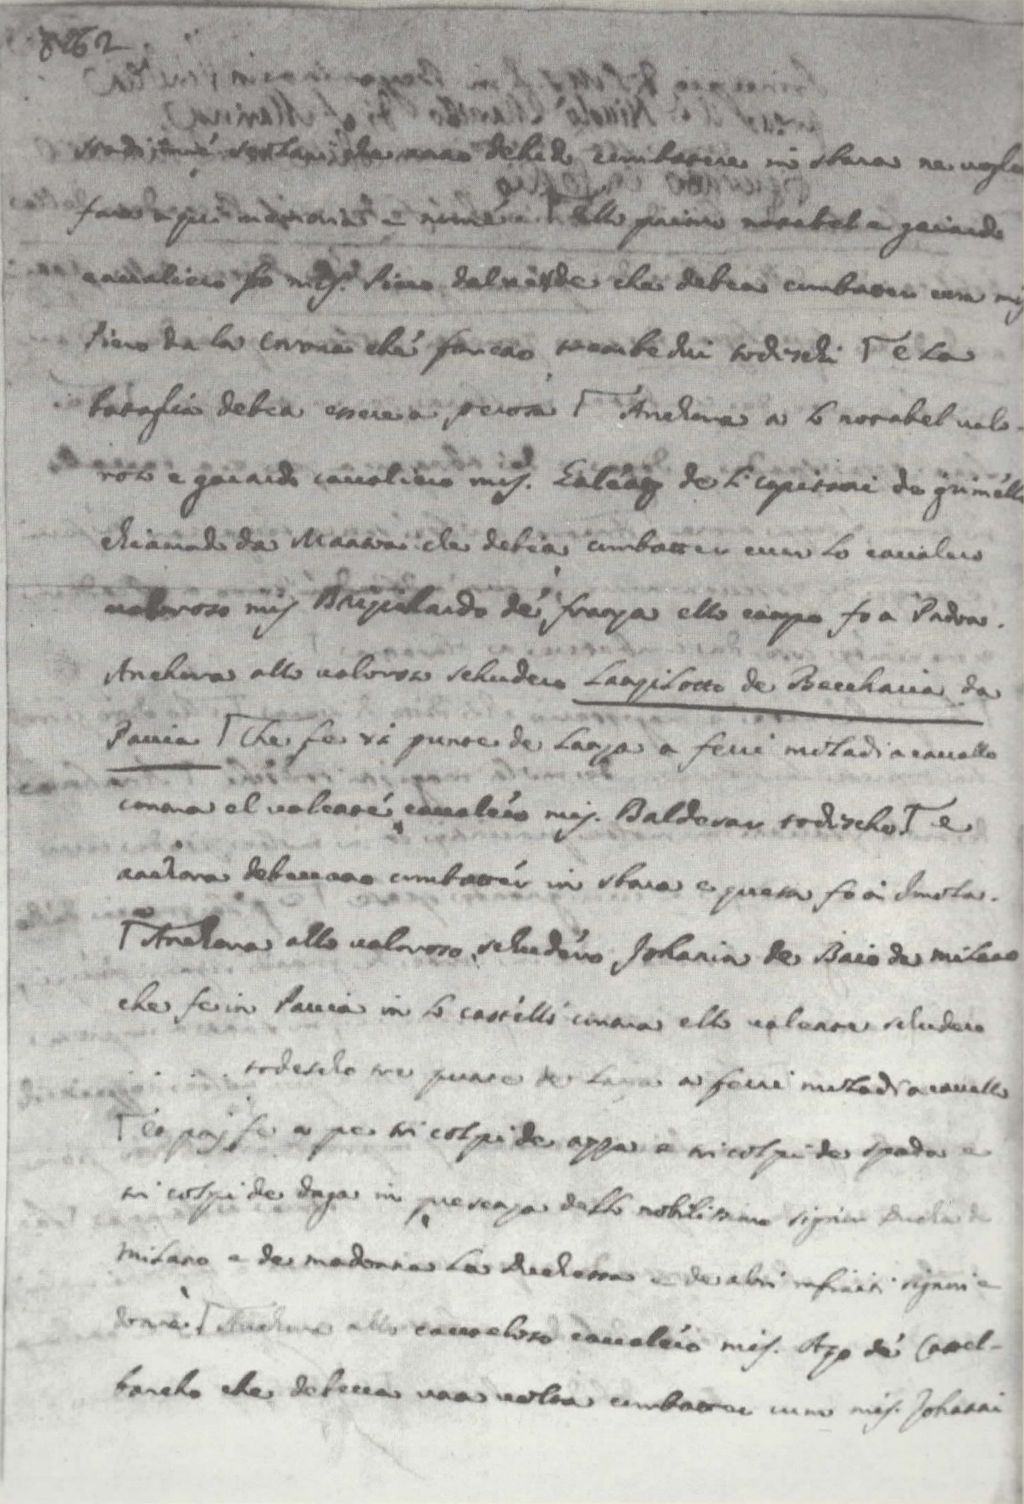 8262
combatere in sbara ne voglo
fare a qui memoria e allo primo notabel e gaiardo
cavaliero fo mis. Piero dal verde che debea combater cum mis
Piero da la Corona che foreno trambedui todischi Γ E la
bataglia debea essere a perosa Γ Anchora a lo notabel valo-
roso e gaiardo cavaliero mis. Galeaz de li capitani de grimello
chiamado da Mantoa che debia combatter cum lo cavalero
valoroso mis Buzichardo de franza ello campo fo a Padoa.
Anchora allo valoroso schudero Lanzilotto de Becharia da
Pavia Γ Che fe vi punte de Lanza a ferri moladi a cavallo
contra el valente cavalero mis. Baldesar todischo Γ e
anchora debeveno combatter in sbara e questa fo a Imola.
Γ Anchora allo valoroso schudero Johanin de Baio de milano
che fe in Pavia in lo castello contra ello valente schudero
. . . . todescho tre punte de Lanza a ferri moladi a cavallo
Γ e po fe a pe tri colpi de azza e tri colpi de spada e
tri colpi de daga in presenza dello nobilissimo signor Ducha de
Milano e de madonna la Duchessa e de altri infiniti signori e
donne. Γ Anchora allo cauteloso cavalero mis. Azo de Castel-
barcho che debeva una volta combatter cum mis. Johanni